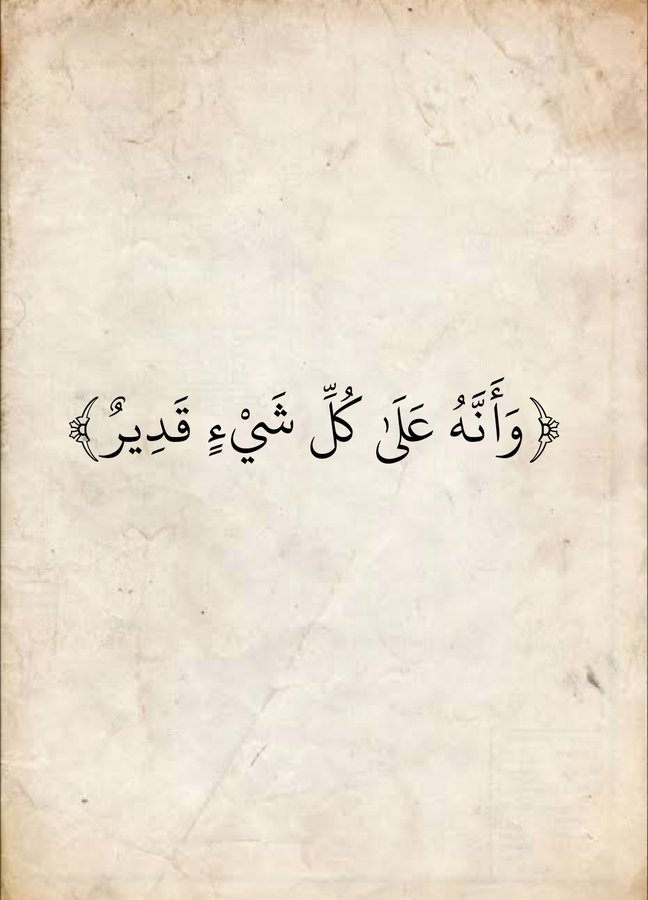 ﴿وَأَنَّهُ عَلَىٰ كُلِّ شَيْءٍ قَدِيرٌ﴾